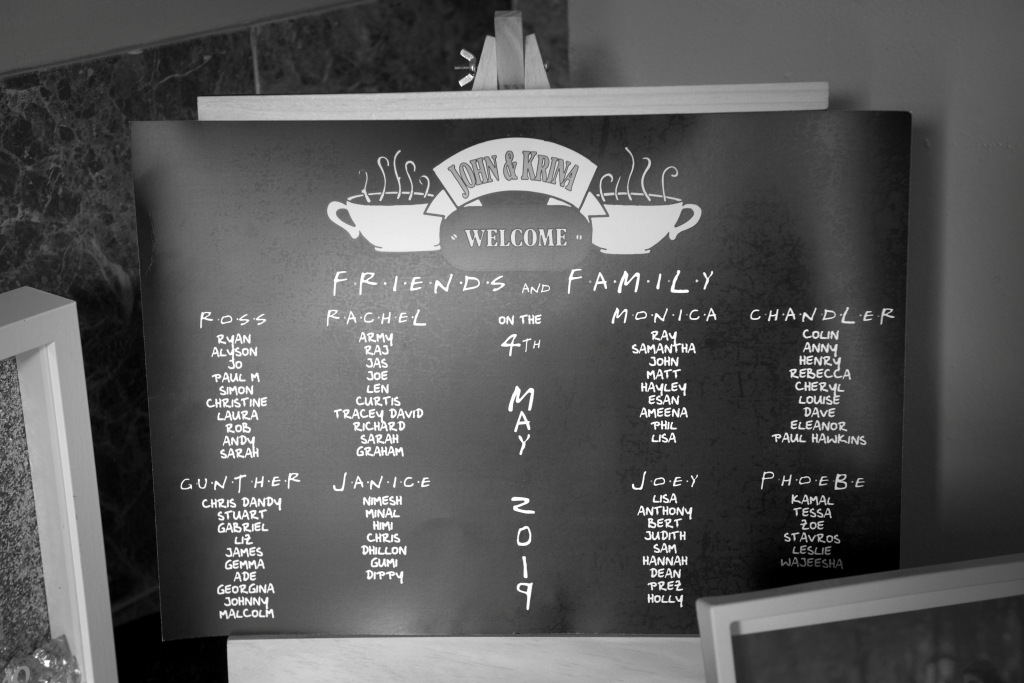 JOHN & KRINA
WELCOME
F·R·I·E·N·D·S AND F·A·M·I·L·Y
R·O·S·S
RYAN
ALYSON
JO
PAUL M
SIMON
CHRISTINE
LAURA
ROB
ANDY
SARAH
R·A·C·H·E·L
ARMY
RAJ
JAS
JOE
LEN
CURTIS
TRACEY DAVID
RICHARD
SARAH
GRAHAM
ON THE
4TH
MAY
2019
M·O·N·I·C·A
RAY
SAMANTHA
JOHN
MATT
HAYLEY
ESAN
AMEENA
PHIL
LISA
C·H·A·N·D·L·E·R
COLIN
ANNY
HENRY
REBECCA
CHERYL
LOUISE
DAVE
ELEANOR
PAUL HAWKINS
G·U·N·T·H·E·R
CHRIS DANDY
STUART
GABRIEL
LIZ
JAMES
GEMMA
ADE
GEORGINA
JOHNNY
MALCOLM
J·A·N·I·C·E
NIMESH
MINAL
HIMI
CHRIS
DHILLON
GUMI
DIPPY
J·O·E·Y
LISA
ANTHONY
BERT
JUDITH
SAM
HANNAH
DEAN
PREZ
HOLLY
P·H·O·E·B·E
KAMAL
TESSA
ZOE
STAVROS
LESLIE
WAJEESHA